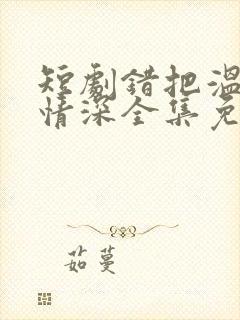 短劇錯把溫
情深全集免
茹蔓